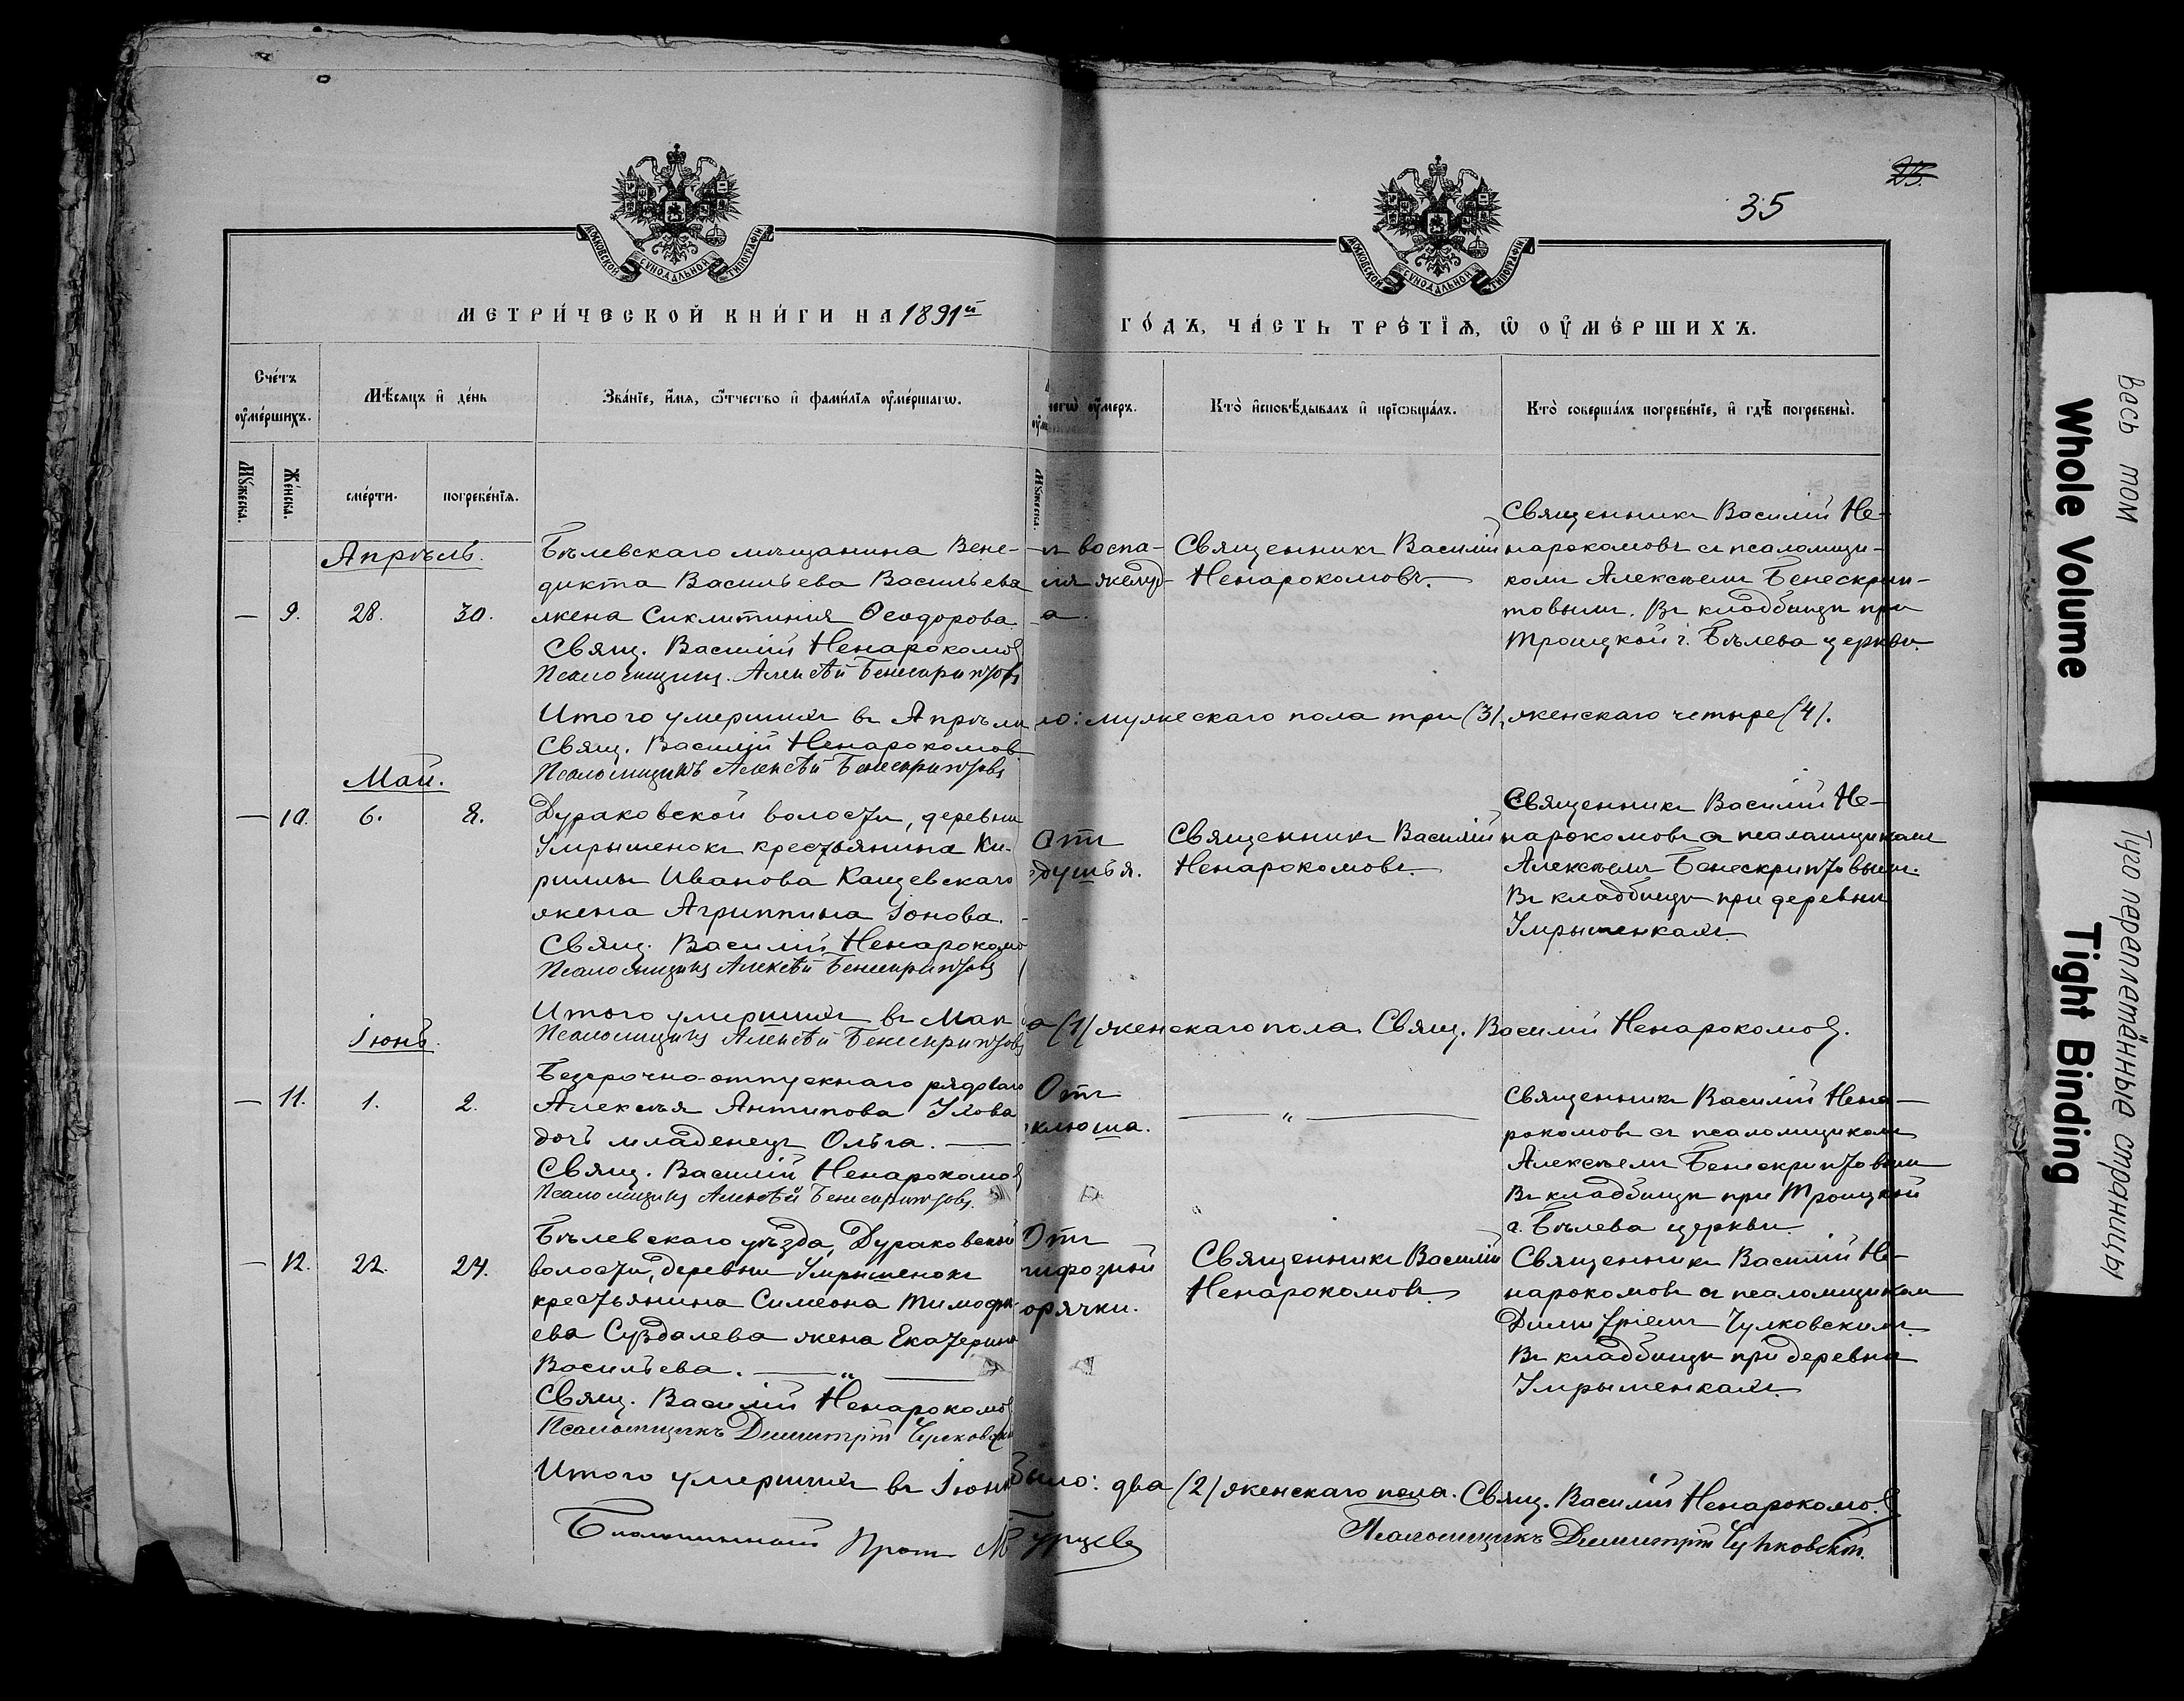 35
23.
МОСКОВСКОЙ СУНОДАЛЬНОЙ ТИПОГРАФІИ
МОСКОВСКОЙ СУНОДАЛЬНОЙ ТИПОГРАФІИ
МЕТРИ́ЧЕСКОЙ КНИ́ГИ НА 1891й
ГО́ДЪ, ЧА́СТЬ ТРЕ́ТІѦ, Ѡ ОУМЕ́РШИХЪ.
Сче́тъ оуме́ршихъ.
Мѣ́сѧцъ и де́нь
Зва́нїе, и́мѧ, ѻ́тчество и фами́лїѧ оуме́ршагѡ.
чегѡ̀ оу́меръ.
Кто̀ исповѣ́дывалъ и прїѡбща́лъ.
Кто̀ соверша́лъ погребе́нїе, и гдѣ̀ погребены̀.
Мꙋ́жеска.
Же́нска.
сме́рти.
погребе́нїѧ.
Мꙋ́жеска.
Апрѣль.
— 9. 28. 30.
Бѣлевскаго мѣщанина Вене-
дикта Васильева Васильева
жена Синклитикия Ѳеодорова
Свящ. Василій Ненарокомов
Псаломщикъ Алексѣй Бенескриптовъ
воспа-
нія желуд-
а.
Священникъ Василій
Ненарокомовъ.
Священникъ Василій Не-
нарокомовъ съ псаломщи-
комъ Алексѣемъ Бенескрип-
товымъ. Въ кладбищѣ при
Троицкой г. Бѣлева церкви.
Итого умершихъ въ Апрѣлѣ ло: мужескаго пола три (3), женскаго четыре (4).
Свящ. Василій Ненарокомов
Псаломщикъ Алексѣй Бенескриптовъ
Май.
— 10. 6. 8.
Дураковской волости, деревни
Умрышенокъ крестьянина Ки-
риллы Иванова Кащевскаго
жена Агриппина Іонова.
Свящ. Василій Ненарокомо
Псаломщикъ Алексѣй Бенескриптовъ
Отъ
душья.
Священникъ Василій
Ненарокомовъ.
Священникъ Василій Не-
нарокомовъ съ псаломщикомъ
Алексѣемъ Бенескриптовымъ.
Въ кладбищѣ при деревни
Умрышенкахъ.
Итого умершихъ въ Маѣ а (1) женскаго пола. Свящ. Василій Ненарокомов.
Псаломщикъ Алексѣй Бенескриптовъ
Іюнь.
— 11. 1. 2.
Безсрочно-отпускнаго рядоваго
Алексѣя Антипова Ухова
дочь младенецъ Ольга. —
Свящ. Василій Ненарокомов
Псаломщикъ Алексѣй Бенескриптовъ.
Отъ
клюша.
— „ —
Священникъ Василій Нена-
рокомовъ съ псаломщикомъ
Алексѣемъ Бенескриптовымъ
Въ кладбищѣ при Троицкой
г. Бѣлева церкви
— 12. 22. 24.
Бѣлевскаго уѣзда, Дураковской
волости, деревни Умрышенокъ
крестьянина Симеона Тимофѣ-
ева Суздалева жена Екатерина
Васильева. — „ —
Свящ. Василій Ненарокомов
Псаломщикъ Димитрій Чулковскій
Отъ
тифозной
орячки.
Священникъ Василій
Ненарокомовъ.
Священникъ Василій Не-
нарокомовъ съ псаломщикомъ
Димитріемъ Чулковскимъ.
Въ кладбищѣ при деревнѣ
Умрышенкахъ.
Итого умершихъ въ Іюнѣ было: два (2) женскаго пола. Свящ. Василій Ненарокомов
Псаломщикъ Димитрій Чулковскій.
Благочинный Прот. М Бурцевъ
весь том
Whole Volume
Туго переплетённые страницы
Tight Binding